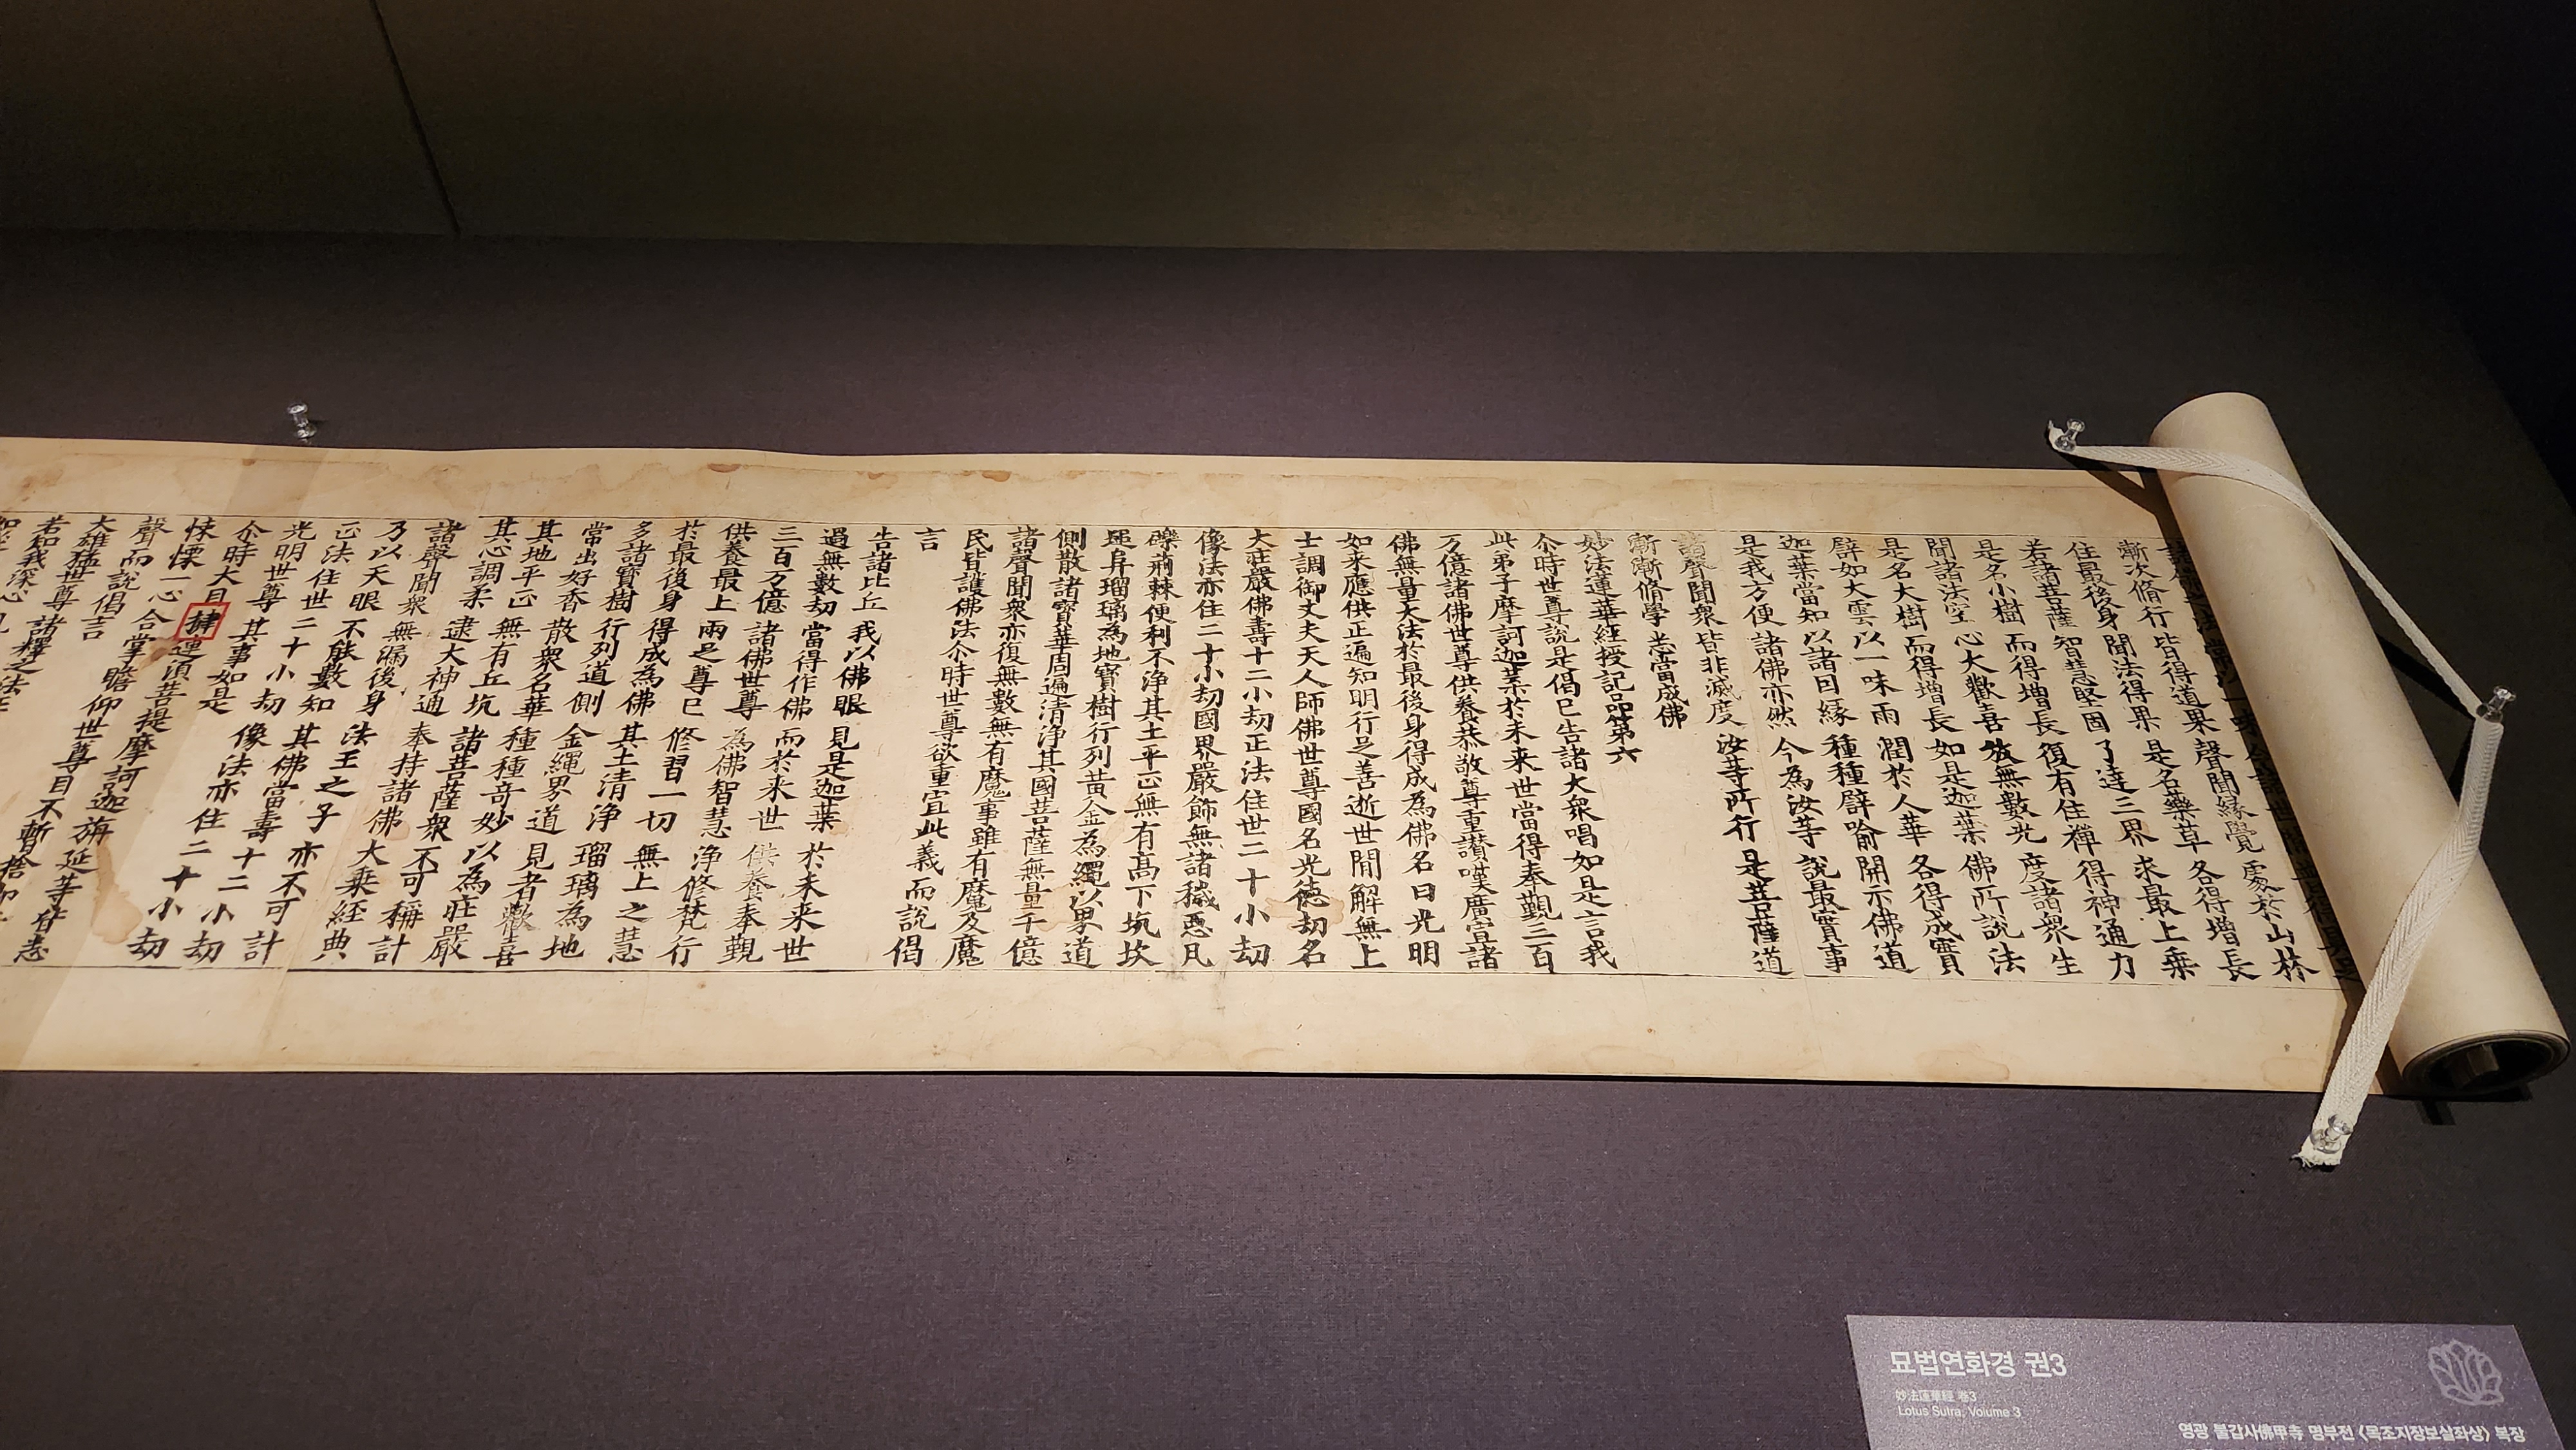 常以一味 令諸世間 普得具足
漸次脩行 皆得道果 聲聞緣覺 處於山林
住最後身 聞法得果 是名藥草 各得增長
若諸菩薩 智慧堅固 了達三界 求最上乘
是名小樹 而得增長 復有住禪 得神通力
聞諸法空 心大歡喜 放無數光 度諸衆生
是名大樹 而得增長 如是迦葉 佛所說法
譬如大雲 以一味雨 潤於人華 各得成實
迦葉當知 以諸因緣 種種譬喻 開示佛道
是我方便 諸佛亦然 今為汝等 說最實事
諸聲聞衆 皆非滅度 汝等所行 是菩薩道
漸漸脩學 悉當成佛
妙法蓮華經授記品第六
尒時世尊說是偈已告諸大衆唱如是言我
此弟子摩訶迦葉於未来世當得奉覲三百
万億諸佛世尊供養恭敬尊重讃嘆廣宣諸
佛無量大法於最後身得成為佛名曰光明
如来應供正遍知明行足善逝世間解無上
士調御丈夫天人師佛世尊國名光德劫名
大莊嚴佛壽十二小劫正法住世二十小劫
像法亦住二十小劫國界嚴飾無諸穢惡瓦
礫荊棘便利不淨其土平正無有髙下坑坎
堆阜瑠璃為地寶樹行列黃金為繩以界道
側散諸寶華周遍清淨其國菩薩無量千億
諸聲聞衆亦復無數無有魔事雖有魔及魔
民皆護佛法尒時世尊欲重宣此義而說偈
言
告諸比丘 我以佛眼 見是迦葉 於未来世
過無數劫 當得作佛 而於来世 供養奉覲
三百万億 諸佛世尊 為佛智慧 淨修梵行
供養最上 兩足尊已 修習一切 無上之慧
於最後身 得成為佛 其土清淨 瑠璃為地
多諸寶樹 行列道側 金繩界道 見者歡喜
常出好香 散衆名華 種種奇妙 以為莊嚴
其地平正 無有丘坑 諸菩薩衆 不可稱計
其心調柔 逮大神通 奉持諸佛 大乘經典
諸聲聞衆 無漏後身 法王之子 亦不可計
乃以天眼 不能數知 其佛當壽 十二小劫
正法住世 二十小劫 像法亦住 二十小劫
光明世尊 其事如是
尒時大目揵連須菩提摩訶迦旃延等皆悉
悚慄一心合掌瞻仰世尊目不暫捨即
聲而說偈言
大雄猛世尊 諸釋之法王
若知我深心 見
묘법연화경 권3
妙法蓮華經 卷3
Lotus Sutra, Volume 3
영광 불갑사佛甲寺 명부전 〈목조지장보살좌상〉 복장